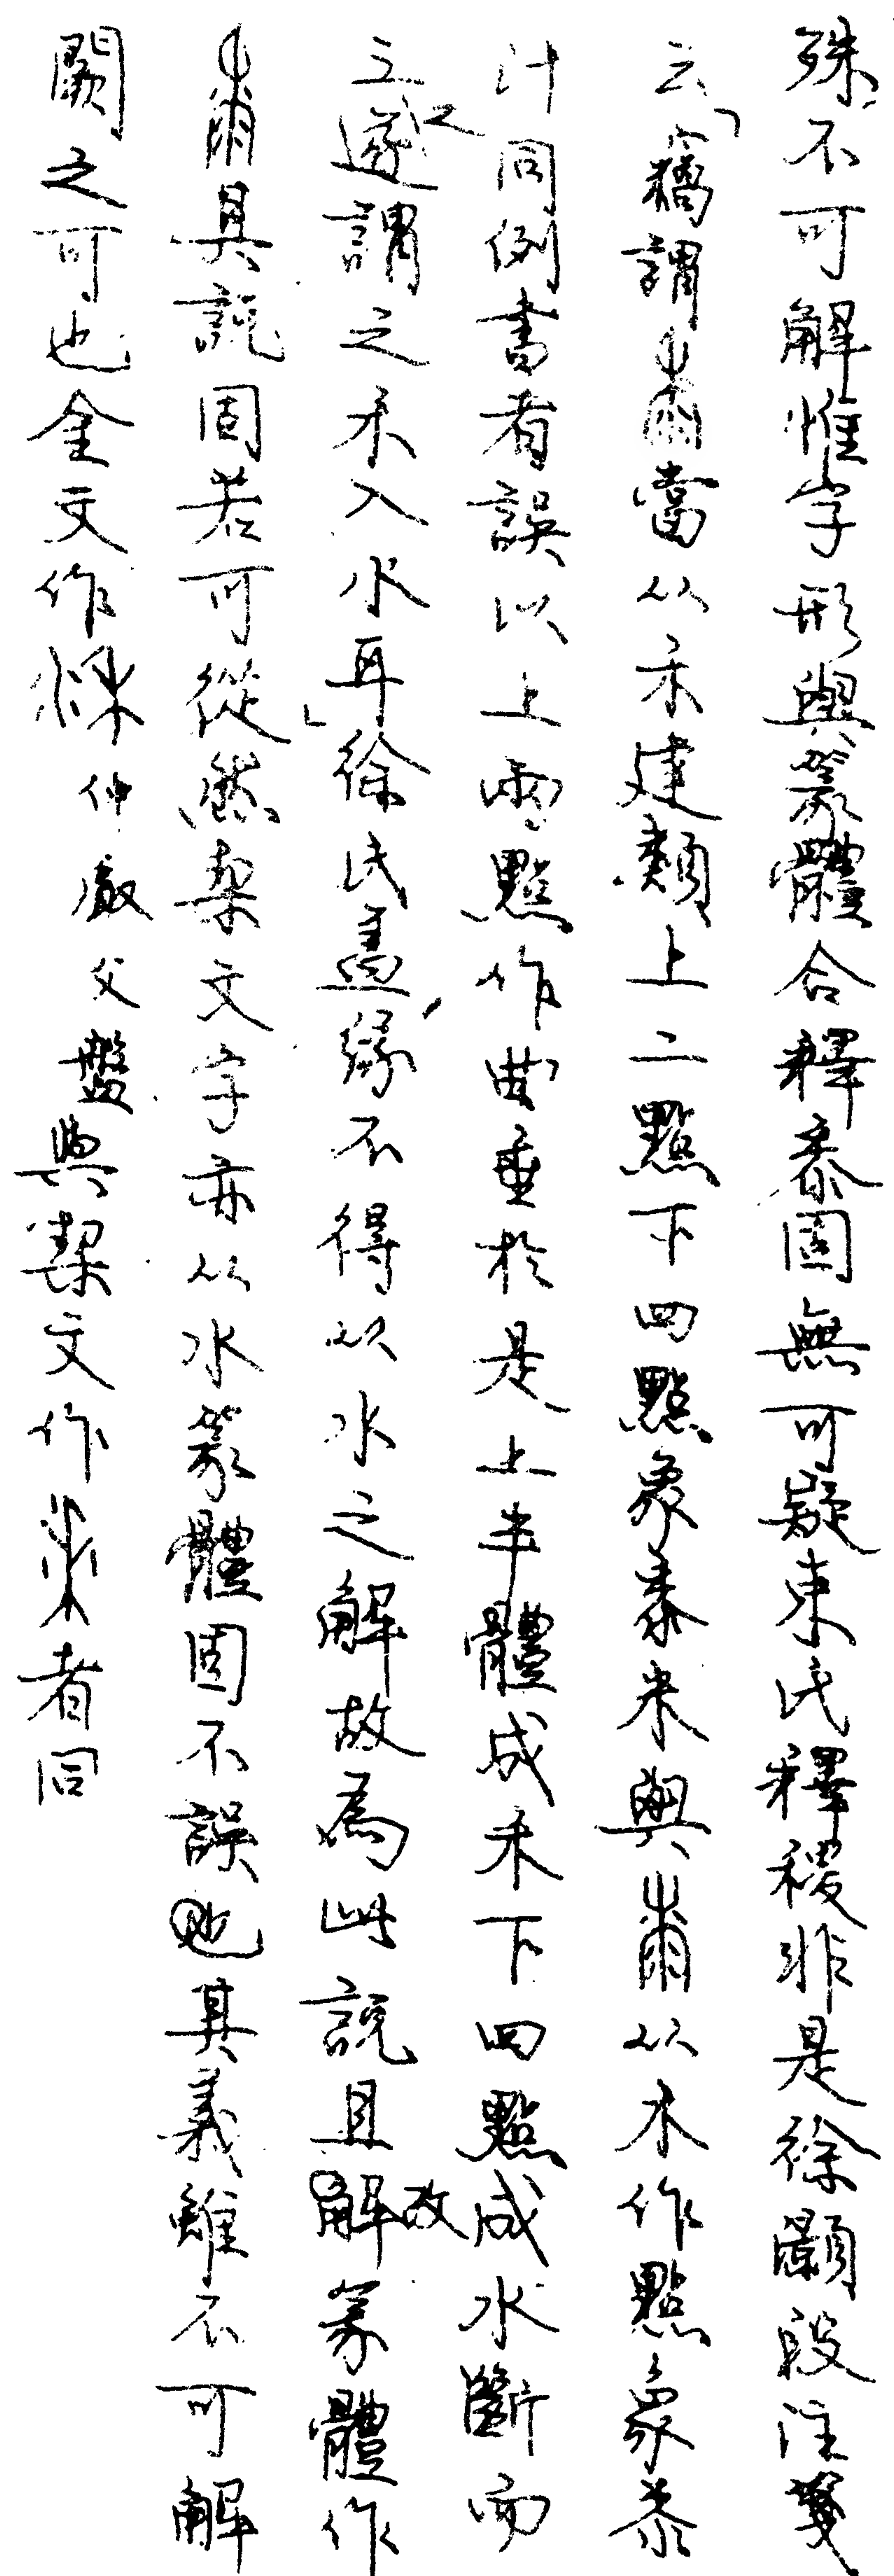 殊不可解惟字形與篆體合釋黍固無可疑束氏釋稷非是徐灝段注箋
云「竊謂黍當从禾建類上二點下四點象黍米與𠁁从水作點象黍
汁同例書者誤以上兩點作曲垂於是上半體成禾下四點成水斷而
之遂謂之禾入水耳」徐氏蓋緣不得从水之解故為此說且改篆體作
其說固若可從然栔文字亦从水篆體固不誤也其義雖不可解
闕之可也金文作仲𠭯父盤與栔文作者同